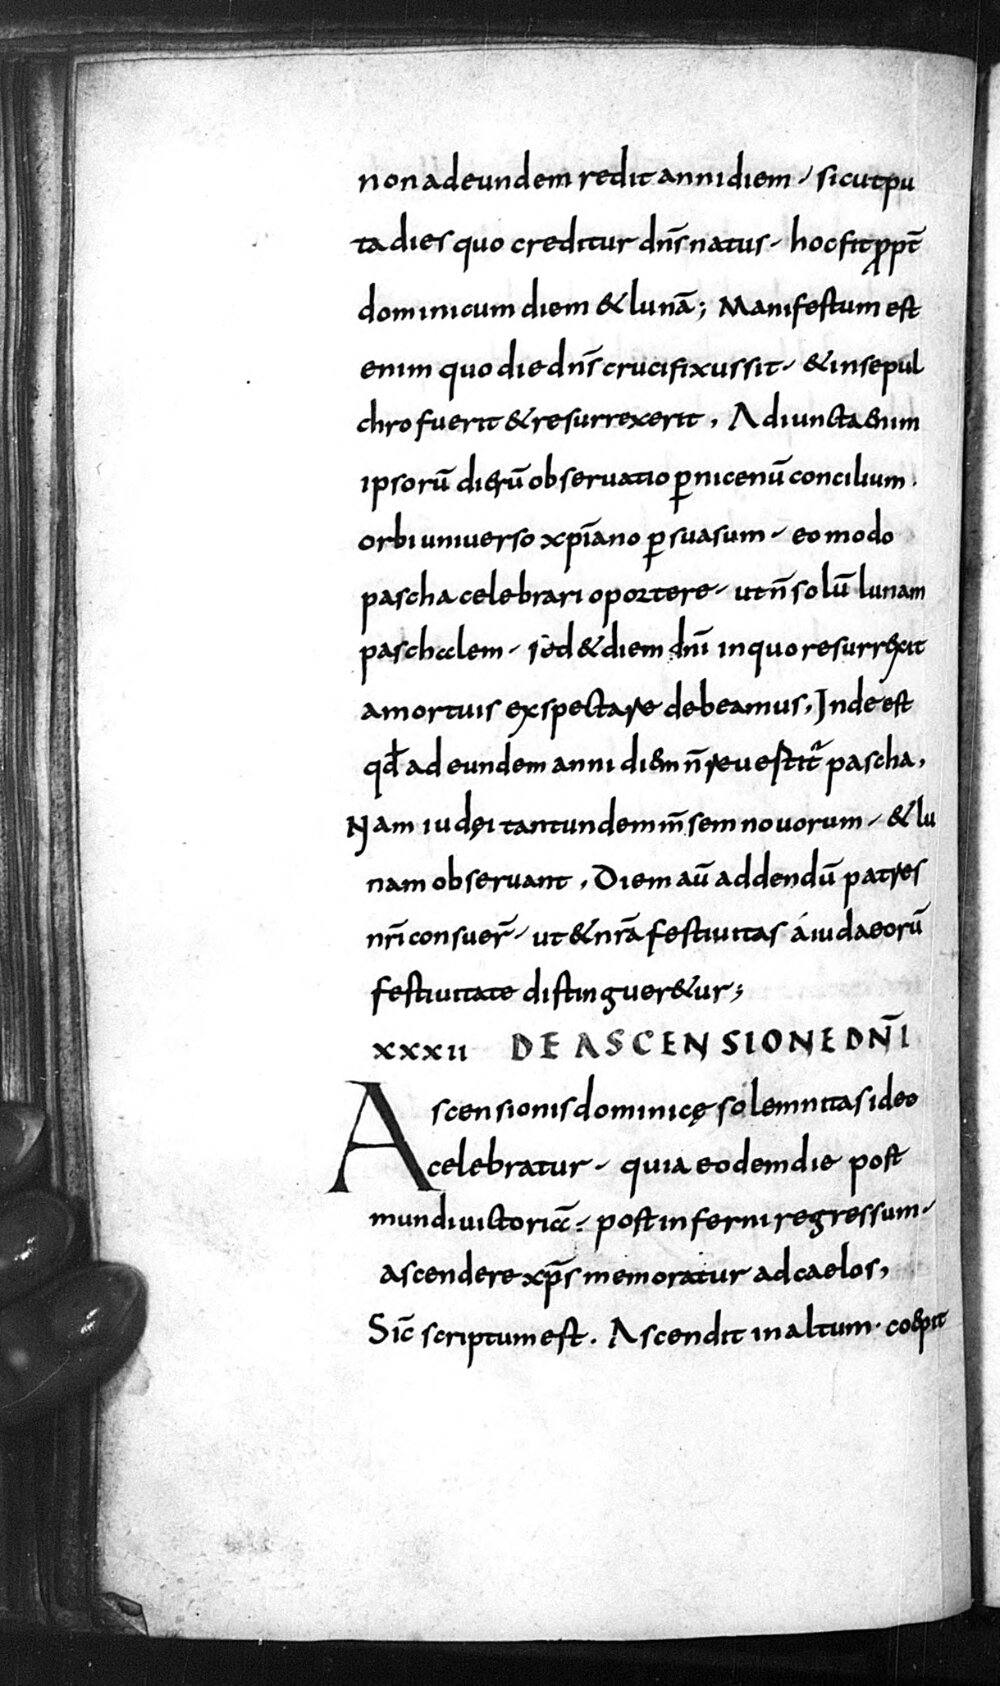 non ad eundem redit anni diem, sicut pu
ta dies quo creditur dñs natus, hoc fit ꝓpt̄
dominicum diem & lunā; Manifestum est
enim quo die dñs crucifixus sit, & in sepul
chro fuerit & resurrexerit, Adiuncta enim
ipsorū dierū obseruatio ꝑ nicenū concilium.
orbi uniuerso xp̄iano ꝑsuasum, eo modo
pascha celebrari oportere, ut n̄ solū lunam
paschalem, sed & diem dn̄i in quo resurrexit
a mortuis exspectare debeamus, Inde est
qd̄ ad eundem anni diem n̄ reuestitr̄ pascha,
Nam iudęi tantundem m̄sem nouorum, & lu
nam obseruant, Diem aū addendū patres
nr̄i consuer̄, ut & nr̄a festiuitas á iudaeorū
festiuitate distinguer&ur;
xxxii DE ASCENSIONE DN̄I
Ascensionis dominicę solemnitas ideo
celebratur, quia eodem die post
mundi uictoriā, post inferni regressum,
ascendere xp̄s memoratur ad caelos,
Sic̄ scriptum est. Ascendit in altum. coepit